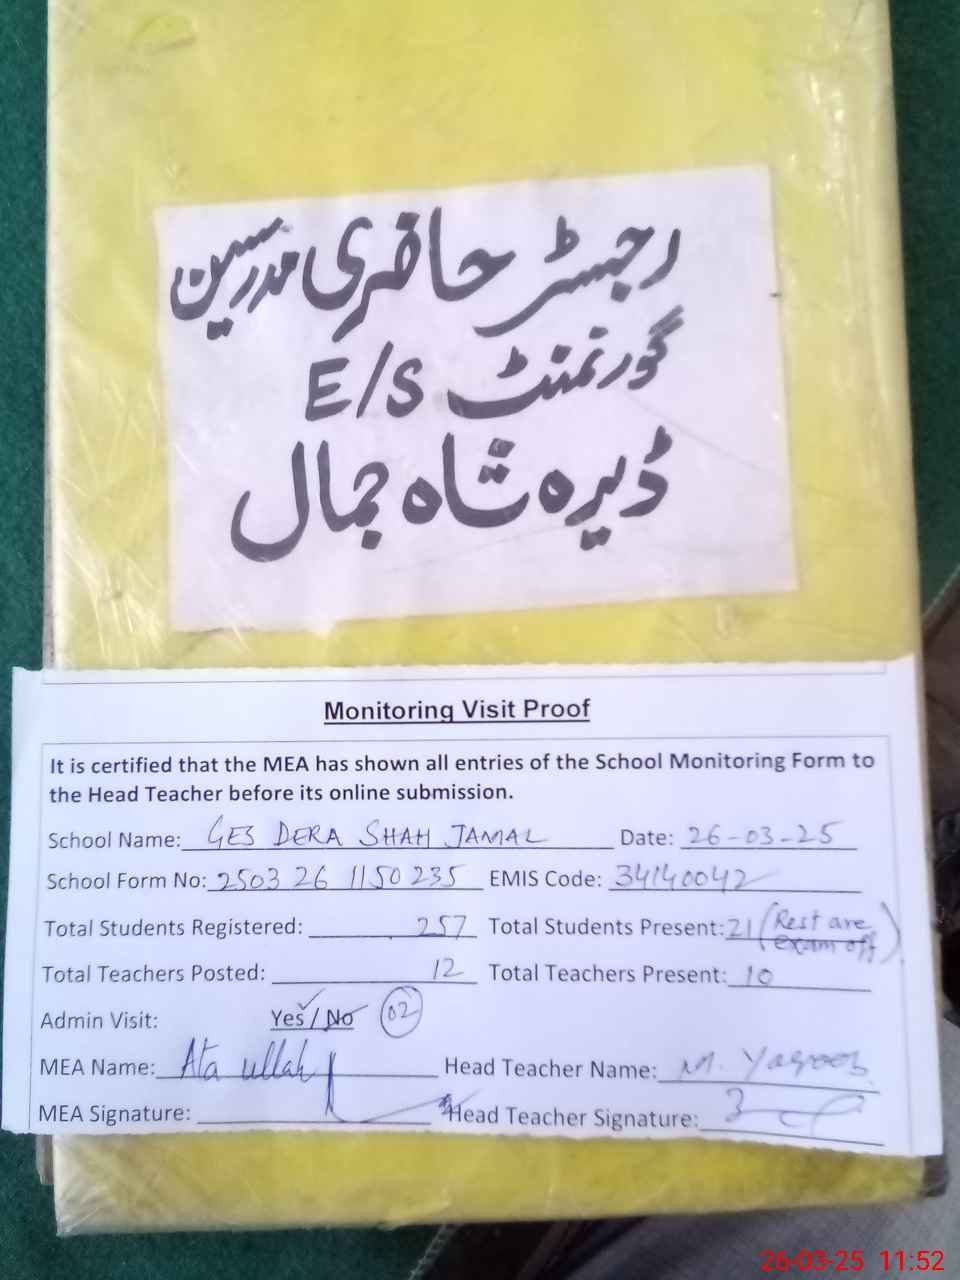 رجسٹر حاضری مدرسین
گورنمنٹ E/S
ڈیرہ شاہ جمال
Monitoring Visit Proof
It is certified that the MEA has shown all entries of the School Monitoring Form to
the Head Teacher before its online submission.
School Name: GES DERA SHAH JAMAL Date: 26-03-25
School Form No: 2503 26 1150 235 EMIS Code: 34140042
Total Students Registered: 257 Total Students Present: 21 (Rest are exam off)
Total Teachers Posted: 12 Total Teachers Present: 10
Admin Visit: Yes / No 02
MEA Name: Ata ullah Head Teacher Name: M. Yaqoob
MEA Signature: Head Teacher Signature:
26-03-25 11:52